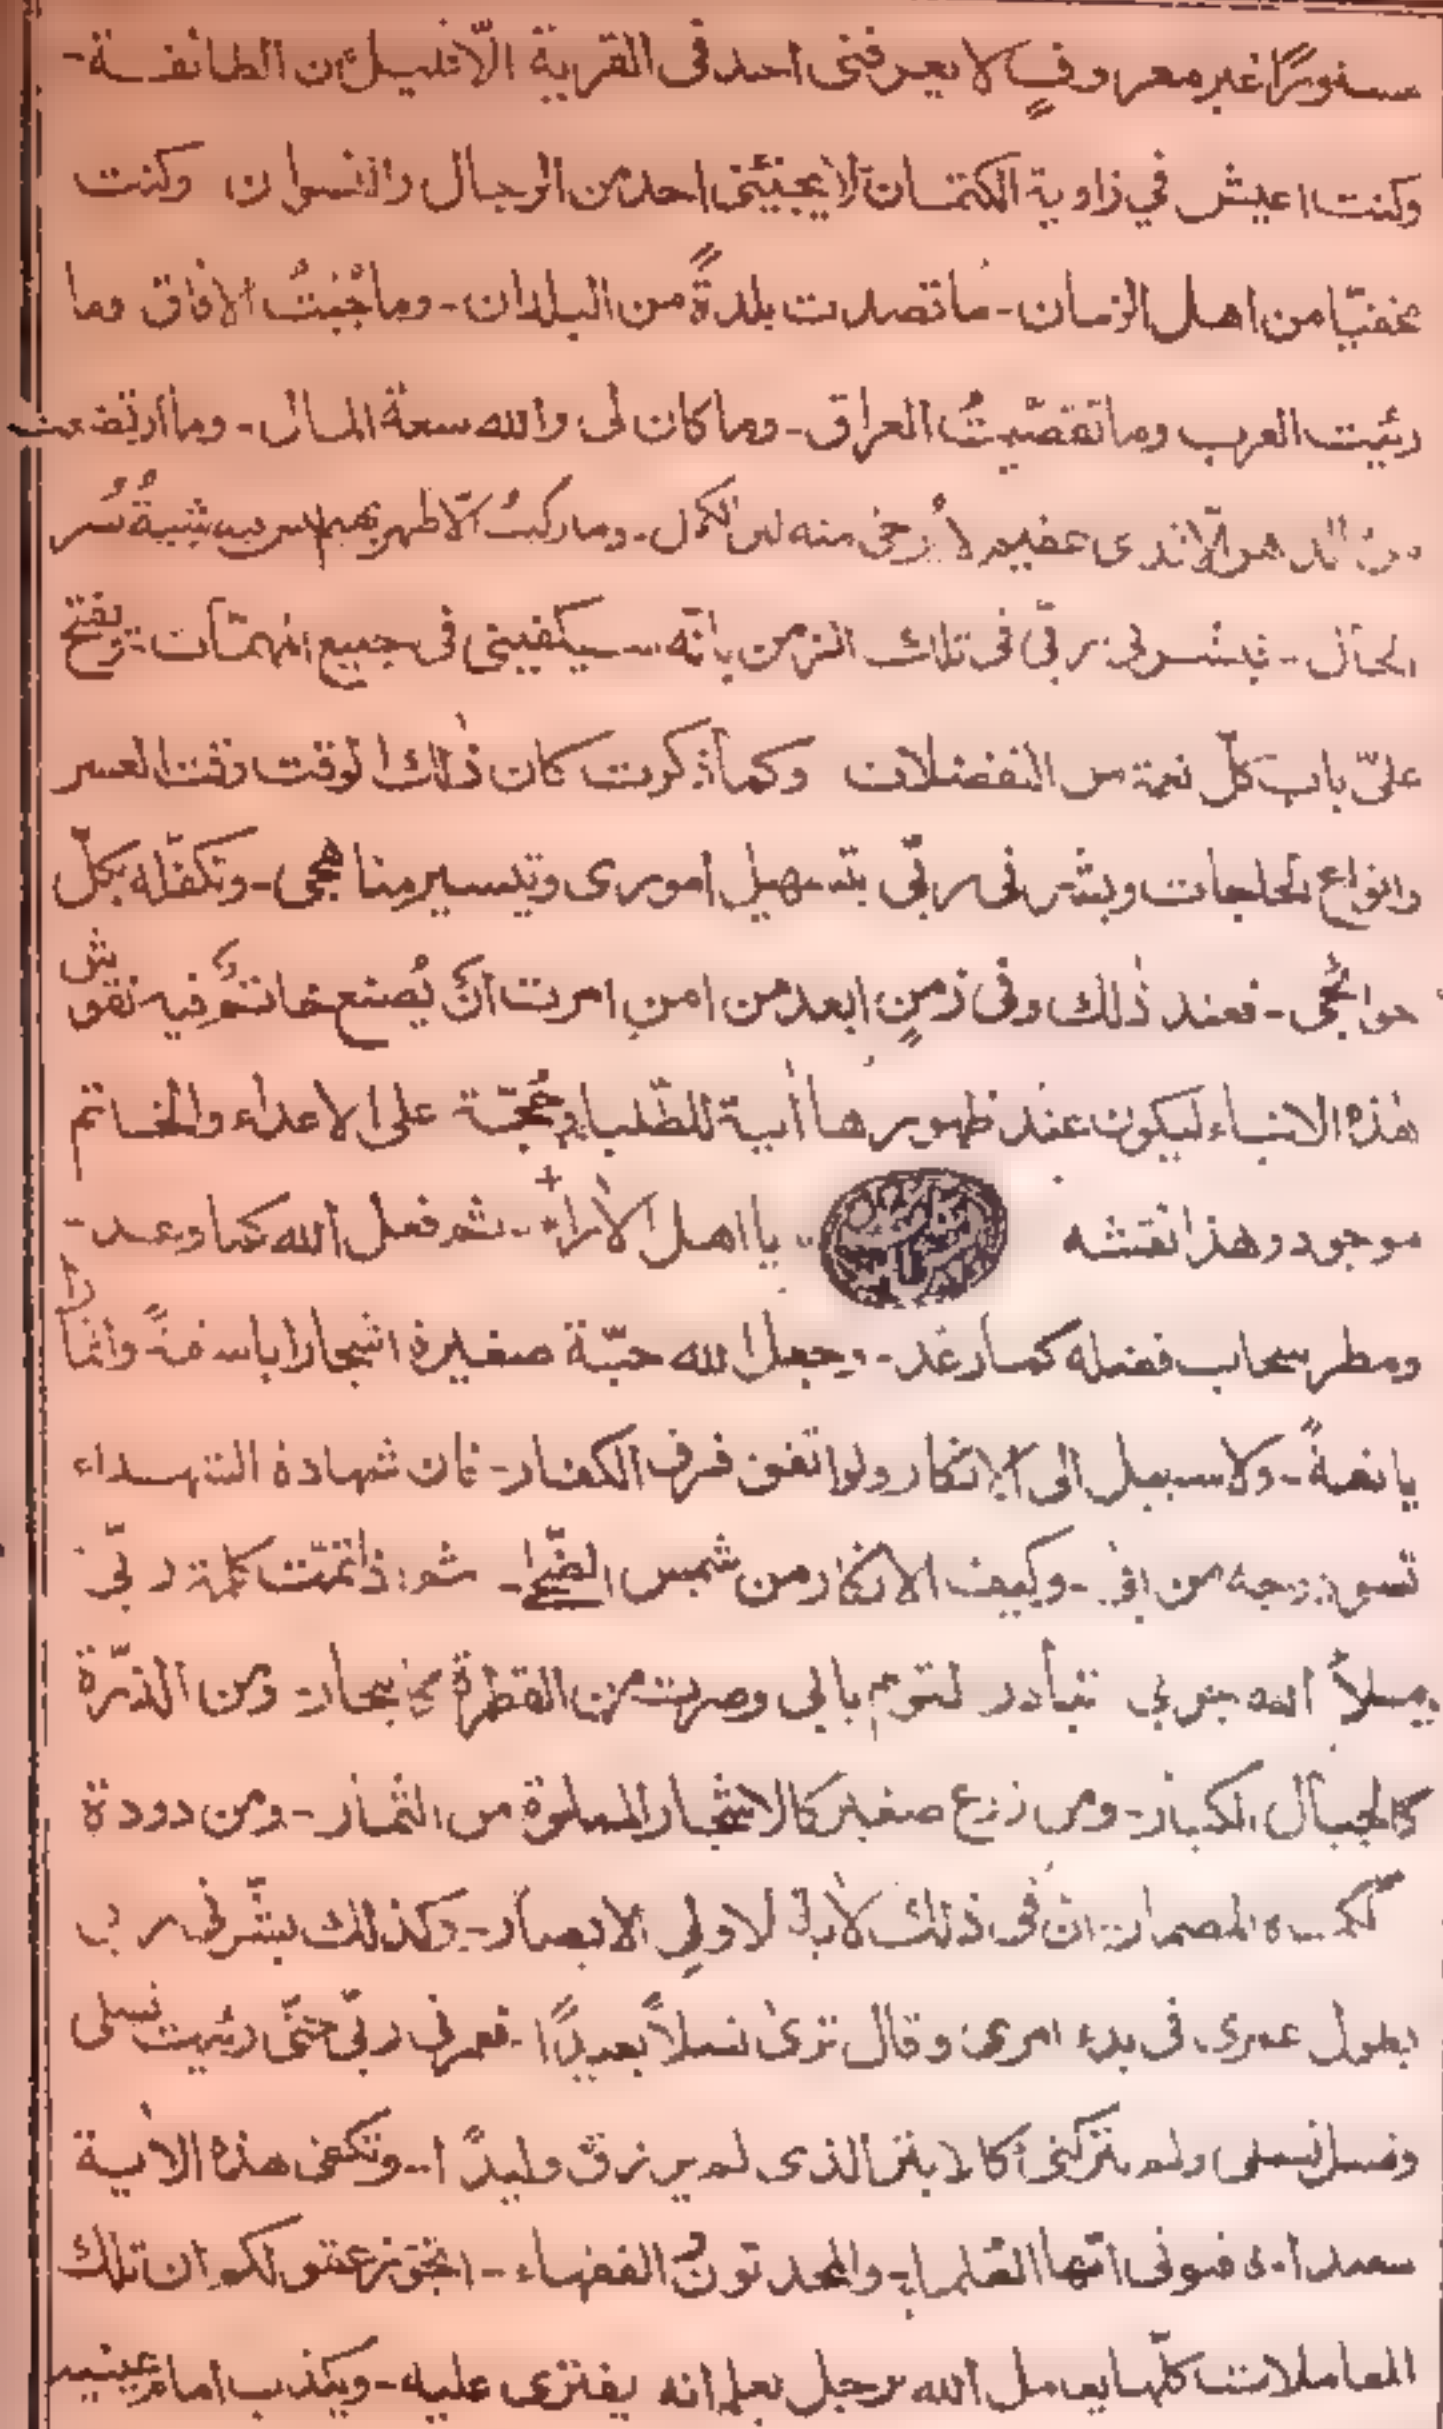 مستورًا غير معروفٍ لا يعرفنى احد فى القرية الّا قليل من الطائفة-
وكنت اعيش في زاوية الكتمان لا يجيئنى احد من الرجال والنسوان وكنت
مخفيّا من اهل الزمان- ما قصدت بلدةً من البلدان- وما جُبتُ الافاق وما
رئيت العرب وما تقصّيتُ العراق- وما كان لى والله سعة المال- وما ارتضعت
من الدهر الّا ثدى عقيم لا يُرجٰى منه لبن الكمال- وما ركبتُ الّا ظهر بهيم
الحال- فبشرنى ربّى فى تلك الزمن بانّه سيكفينى فى جميع المهمّات- ويفتح
علىّ باب كلّ نعمة من التفضلات وكما ذكرت كان ذٰلك الوقت وقت العسر
وانواع الحاجات وبشرنى ربّى بتسهيل امورى وتيسير مناهجى- وتكفّله بكلّ
حوائجى- فعند ذٰلك وفى زمنٍ ابعد من امنٍ امرت ان يُصنع خاتم فيه نقوش
هٰذه الانباء ليكون عند ظهورها اٰية للطّلباء وحُجّة على الاعداء والخاتم
موجود وهذا نقشه يا اهل الاٰراء- ثم فعل الله كما وعد-
ومطر سحاب فضله كما رعد- وجعل الله حبّة صغيرة اشجارا باسقةً واثمارًا
يانعةً- ولا سبيل الى الانكار ولو اتفق فرق الكفار- فان شهادة الشهداء
تسوّد وجه من ابٰى- وكيف الانكار من شمس الضُّحٰى- ثم اذا تمّت كلمة ربّى
ليملأ الله جرابى تبادر القوم بابى وصرت من القطرة كالبحار- ومن الذرّة
كالجبال الكبار- ومن زرع صغير كالاشجار المملوة من الثمار- ومن دودة
المضمار- ان فى ذلك لاٰية لاولى الابصار- وكذلك بشّرنى ربى
بطول عمرى فى بدء امرى وقال ترىٰ نسلًا بعيدًا- فعمرنى ربّى حتّى رئيت نسلى
ونسل نسلى ولم يتركنى كالابتر الذى لم يرزق وليدًا- وتكفى هذه الاٰية
سعيدا- فتونى ايّها العلماء- والمحدثون والفقهاء- اتجوّز عقولكم ان تلك
المعاملات كلّها يعامل الله برجل يعلم انه يفترى عليه- ويكذب امام عينيه